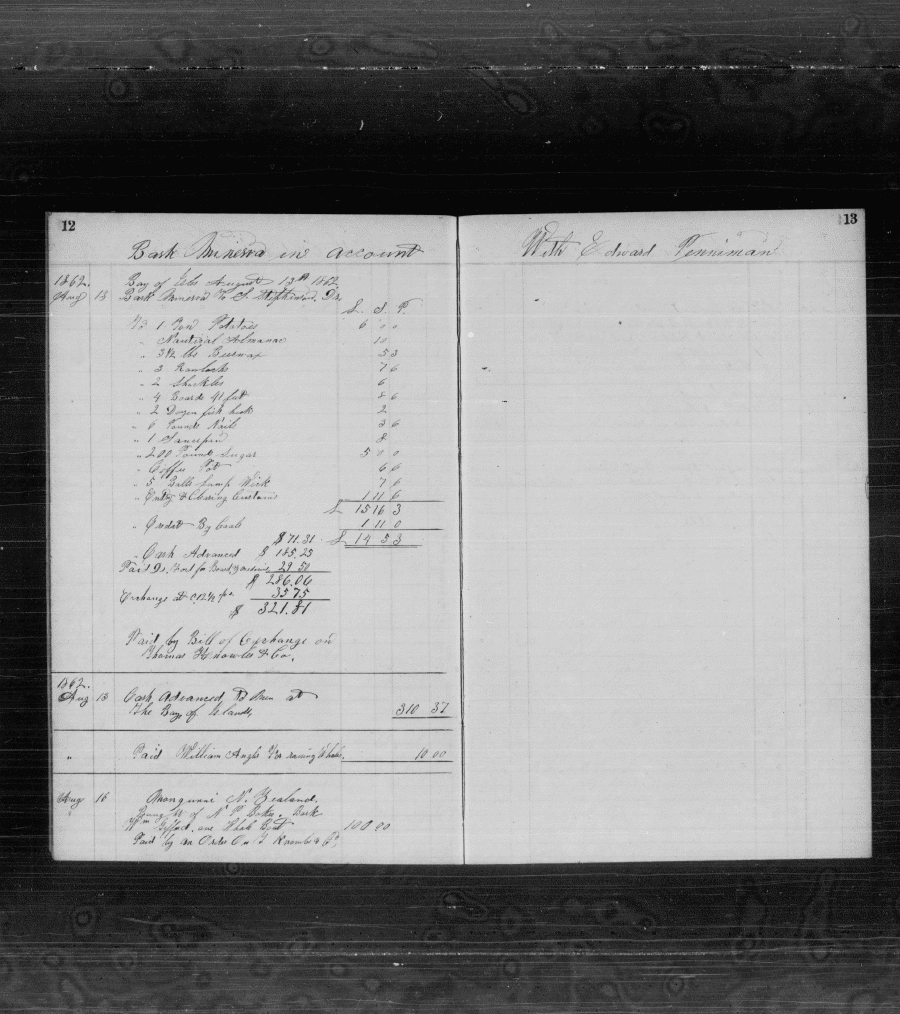 12
Bark Minerva in account
1862. Bay of Isles August 13th 1862
Aug 13 Bark Minerva To S. Stephenson Dr.
£. S. P.
To 1 Ton Potatoes 6 0 0
" Nautical Almanac 10
" 3 1/2 lbs Beeswax 5 3
" 3 Rowlocks 7 6
" 2 Shackles 6
" 4 Boards 41 feet 8 6
" 2 Dozen fish hook 2
" 6 Pounds Nails 3 6
" 1 Saucepan 8
" 200 Pounds Sugar 5 0 0
" Coffee Pot 6 6
" 5 Balls Lamp Wick 7 6
" Entry & Clearing Customs 1 11 6
£ 15 16 3
" Credit By Cask 1 11 0
$71.31 £ 14 5 3
" Cash Advanced $ 185.25
Paid Do. for 29 50
$ 286.06
Exchange at 0.12 1/2 pr 35 75
$ 321.81
Paid by Bill of Exchange on
Thomas Knowles & Co.
1862.
Aug 13 Cash Advanced To Men at
the Bay of Islands, 310 37
" Paid William for raising Whale, 10 00
Aug 16 Mongunui N. Zealand.
of N. P. Bark
Wm Gifford one Whale Boat 100 00
Paid by an Order On T Knowles & Co
13
With Edward Penniman